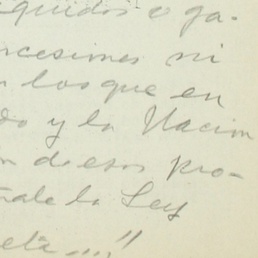 iquidos o ga-
ncesiones ni
n los que en
do y la Nacion
n de esos pro-
ñale la Ley
eta...."